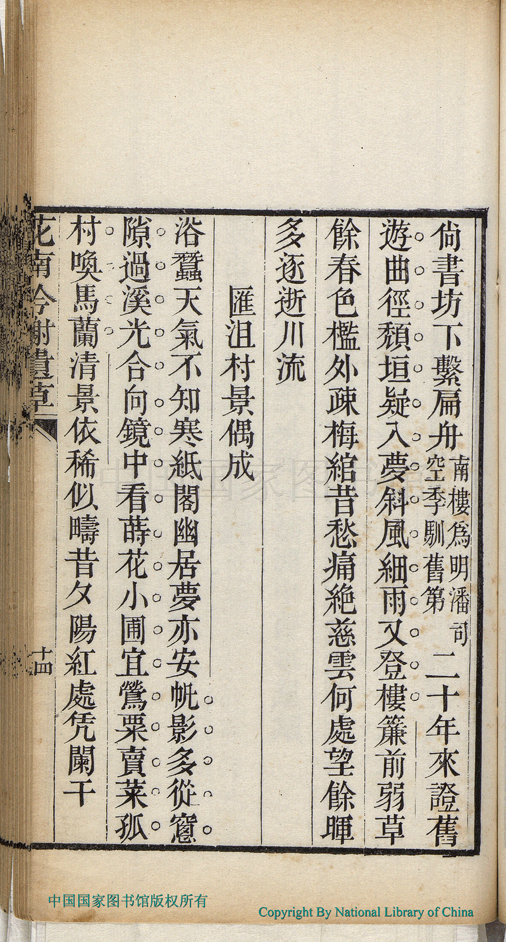 尙書坊下繫扁舟南樓爲明潘司空季馴舊第二十年來證舊
遊曲徑頹垣疑入夢斜風細雨又登樓簾前弱草
餘春色檻外疎梅綰昔愁痛絶慈雲何處望餘暉
多逐逝川流
匯沮村景偶成
浴蠶天氣不知寒紙閣幽居夢亦安帆影多從窻
隙過溪光合向鏡中看蒔花小圃宜鶯粟賣菜孤
村喚馬蘭清景依稀似疇昔夕陽紅處凭闌干
花南吟榭遺草
十四
中国国家图书馆版权所有
Copyright By National Library of China